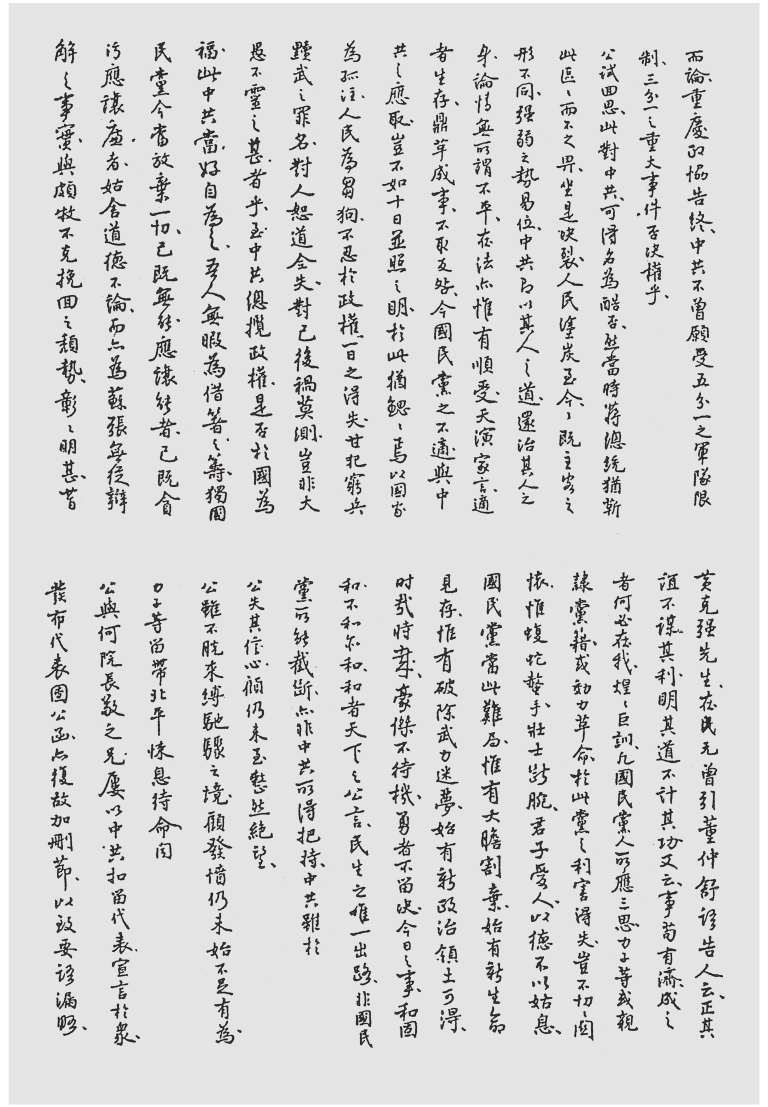 而論重慶政協告終、中共不曾願受五分一之軍隊限
制、三分一之重大事件否決權乎、
公試回思、此對中共、可得名為酷否、然當時蔣總統猶靳
此區〻而不之畀、坐是決裂、人民塗炭至今、今既主客之
形不同、强弱之勢易位、中共即以其人之道、還治其人之
身、論情無所謂不平、在法亦惟有順受、天演家言、適
者生存、鼎革成事、不取反咎、今國民黨之不適、與中
共之應取、豈不如十日並照之明、於此猶鰓〻焉以國家
為孤注、人民為芻狗、不忍於政權一日之得失、甘犯窮兵
黷武之罪名、對人恕道全失、對己後禍莫測、豈非大
愚不靈之甚者乎、至中共總攬政權、是否於國為
福、此中共當好自為之、吾人無暇為借箸之籌、獨國
民黨今當放棄一切、己既無能、應讓能者、己既貪
污、應讓廉者、姑舍道德不論、而亦為蘇張無從辯
解之事實、與頗牧不克挽回之頹勢、彰〻明甚、昔
黃克强先生、在民元曾引董仲舒語告人云、正其
誼不謀其利、明其道不計其功、又云事苟有濟、成之
者何必在我、煌〻巨訓、凡國民黨人所應三思、力子等或親
隸黨籍、或効力革命、於此黨之利害得失、豈不切〻關
懷、惟蝮蛇螫手、壯士斷腕、君子愛人以德、不以姑息、
國民黨當此難局、惟有大膽割棄、始有新生命
見存、惟有破除武力迷夢、始有新政治領土可得、
時哉時哉、豪傑不待機、勇者不留決、今日之事、和固
和、不和亦和、和者天下之公言、民生之唯一出路、非國民
黨所能截斷、亦非中共所得把持、中共雖於
公失其信心、顧仍未至憖然絕望、
公雖不脫束縛馳驟之境、顧發憤仍未始不足有為、
力子等留滯北平、悚息待命、閱
公與何院長敬之兄、屢以中共扣留代表、宣言於衆、
發布代表團公函、亦復故加刪節、以致要語漏略、